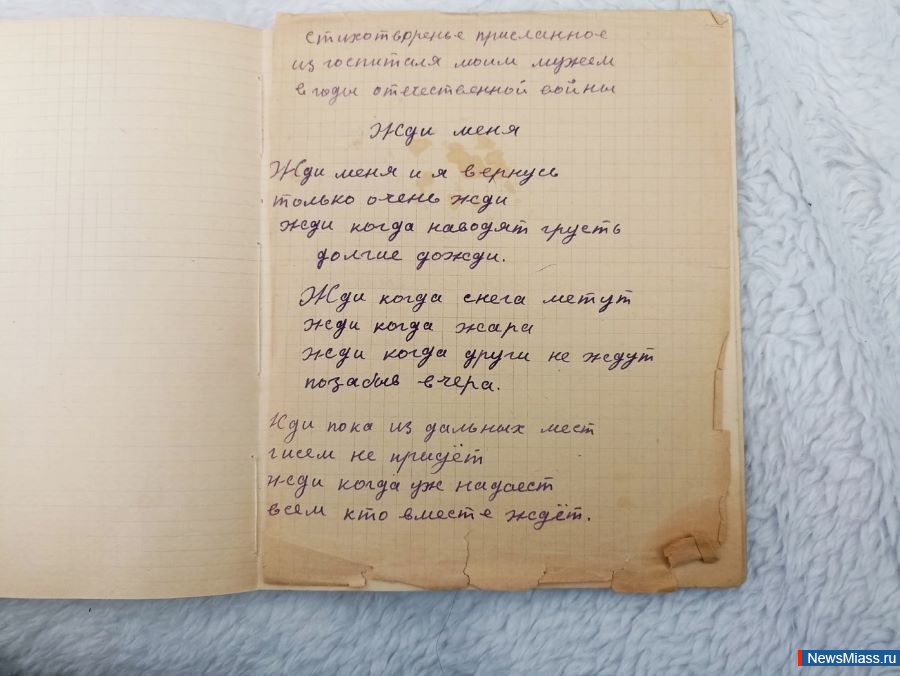 Стихотворенье присланное
из госпиталя моим мужем
в годы отечественной войны
Жди меня
Жди меня и я вернусь
только очень жди
жди когда наводят грусть
долгие дожди.
Жди когда снега метут
жди когда жара
жди когда други не ждут
позабыв вчера.
Жди пока из дальных мест
писем не придёт
жди когда уж надоест
всем кто вместе ждёт.
NewsMiass.ru